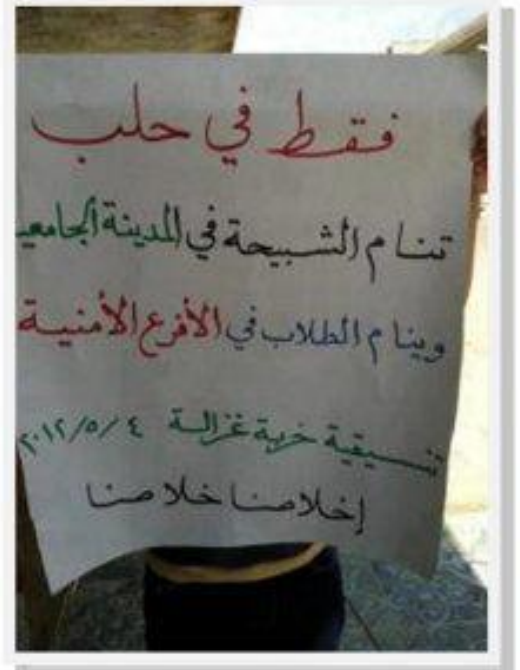 فقط في حلب
تنام الشبيحة في المدينة الجامعية
وينام الطلاب في الأفرع الأمنية
تنسيقية خربة غزالة ٢٠١٢/٥/٤
إخلاصنا خلاصنا